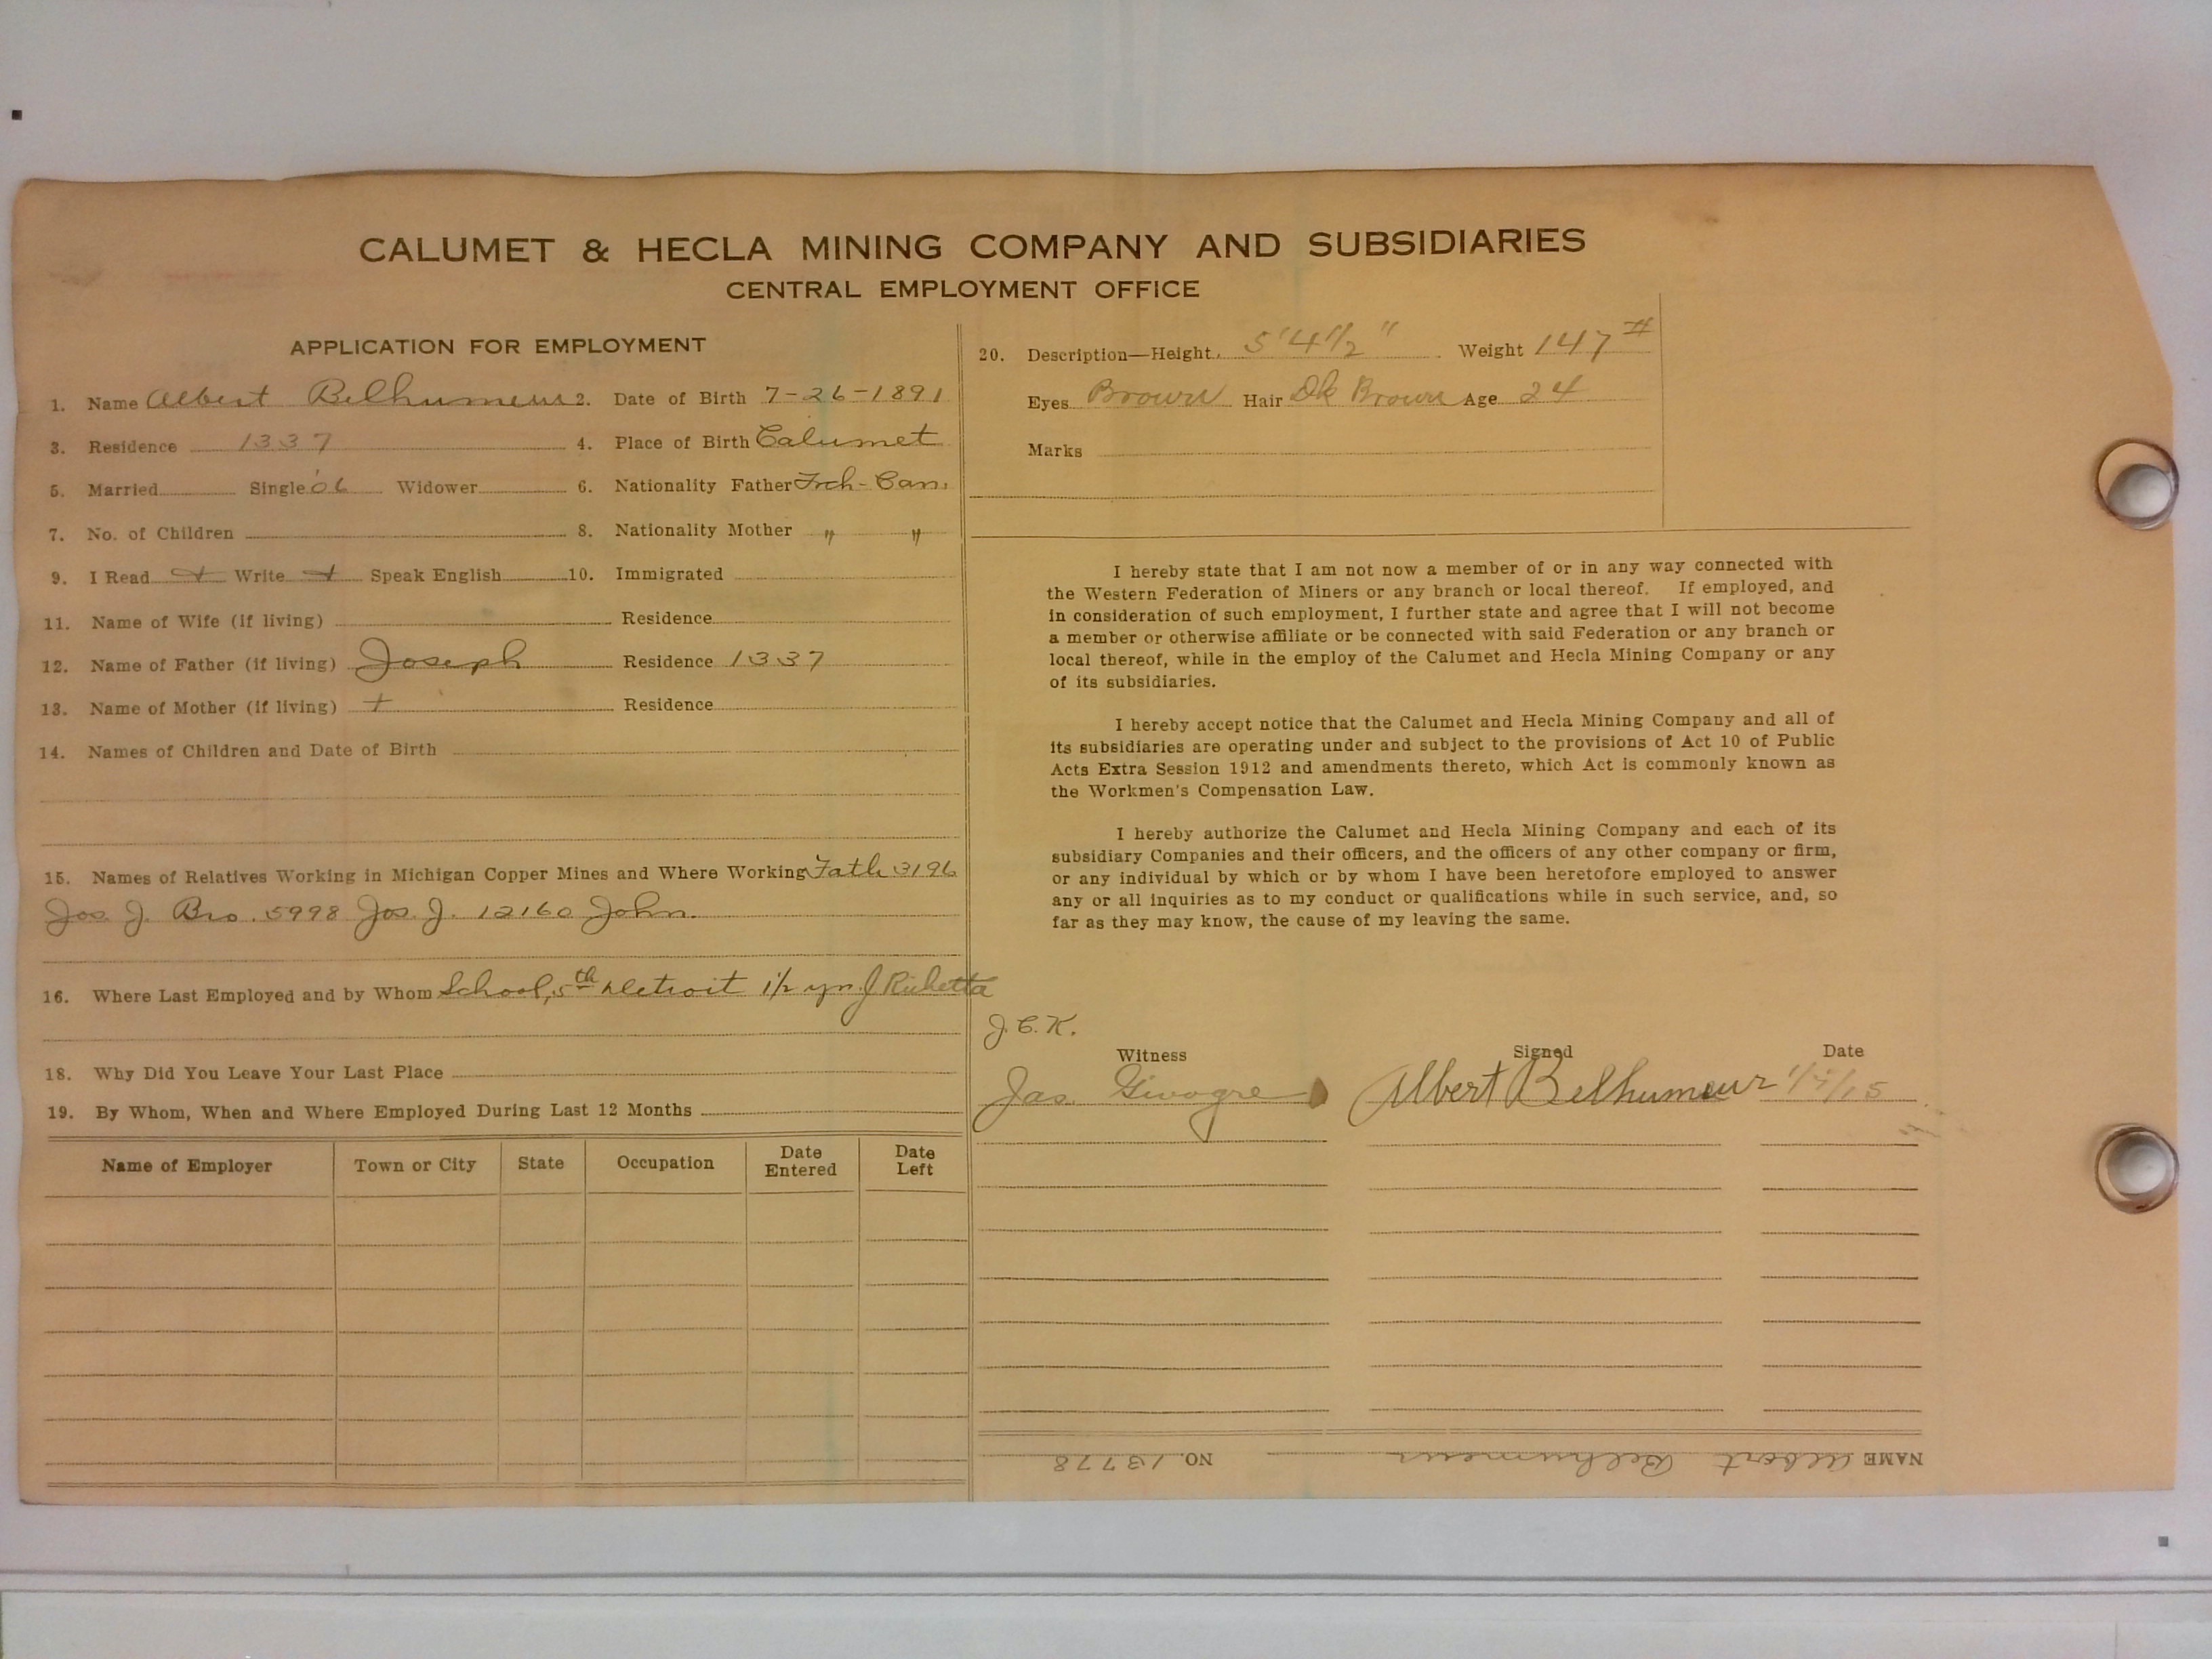 CALUMET & HECLA MINING COMPANY AND SUBSIDIARIES
CENTRAL EMPLOYMENT OFFICE
APPLICATION FOR EMPLOYMENT
1. Name Albert Belhumeur 2. Date of Birth 7-26-1891
3. Residence 1337 4. Place of Birth Calumet
5. Married Single Widower 6. Nationality Father Frch-Can.
7. No. of Children 8. Nationality Mother " "
9. I Read + Write + Speak English 10. Immigrated
11. Name of Wife (if living) Residence
12. Name of Father (if living) Joseph Residence 1337
13. Name of Mother (if living) + Residence
14. Names of Children and Date of Birth
15. Names of Relatives Working in Michigan Copper Mines and Where Working Fath 3196
Jos. J. Bro. 5998 Jos. J. 12160 John.
16. Where Last Employed and by Whom School, 5th Detroit 1/2 yr. J Ricketta
18. Why Did You Leave Your Last Place
19. By Whom, When and Where Employed During Last 12 Months
Name of Employer Town or City State Occupation Date Entered Date Left
20. Description—Height 5'4 1/2" Weight 147#
Eyes Brown Hair Dk Brown Age 24
Marks
I hereby state that I am not now a member of or in any way connected with
the Western Federation of Miners or any branch or local thereof. If employed, and
in consideration of such employment, I further state and agree that I will not become
a member or otherwise affiliate or be connected with said Federation or any branch or
local thereof, while in the employ of the Calumet and Hecla Mining Company or any
of its subsidiaries.
I hereby accept notice that the Calumet and Hecla Mining Company and all of
its subsidiaries are operating under and subject to the provisions of Act 10 of Public
Acts Extra Session 1912 and amendments thereto, which Act is commonly known as
the Workmen's Compensation Law.
I hereby authorize the Calumet and Hecla Mining Company and each of its
subsidiary Companies and their officers, and the officers of any other company or firm,
or any individual by which or by whom I have been heretofore employed to answer
any or all inquiries as to my conduct or qualifications while in such service, and, so
far as they may know, the cause of my leaving the same.
J.C.K.
Witness Signed Date
Jas. Givogre Albert Belhumeur
NAME Albert Belhumeur NO. 13778